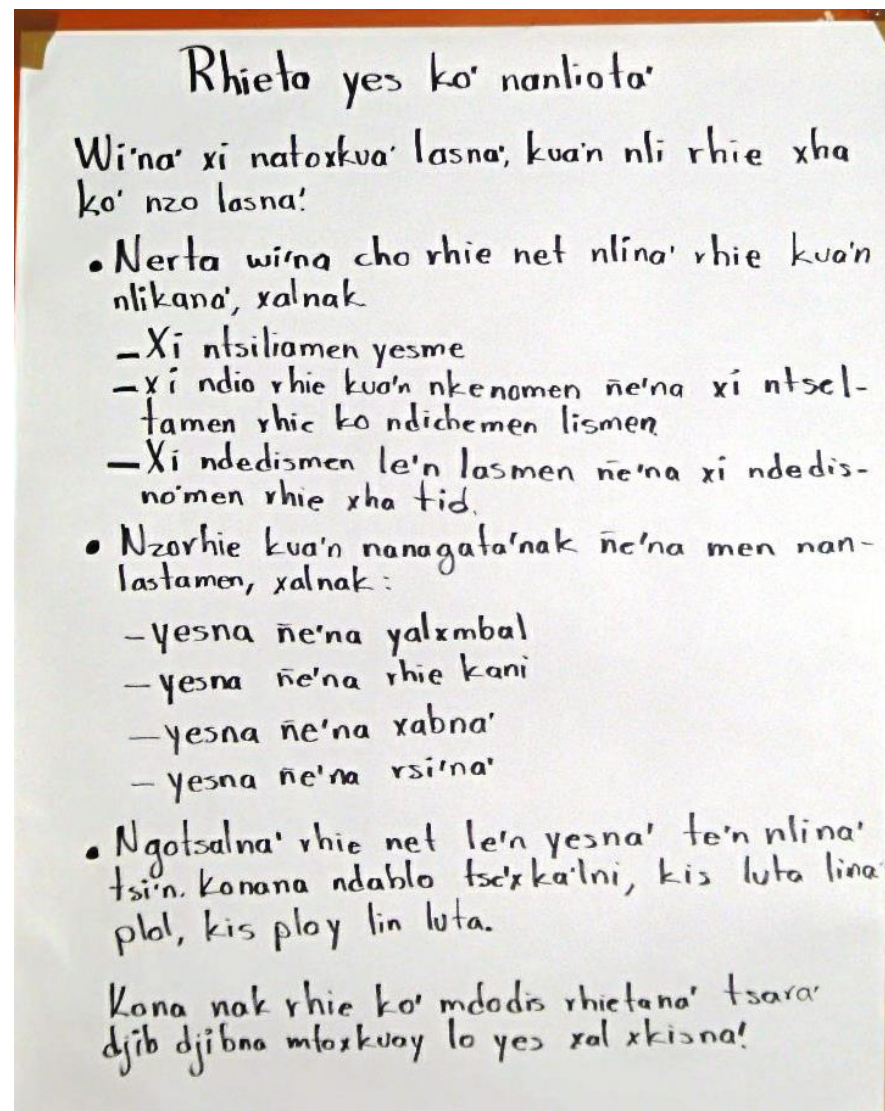 Rhieta yes ko' nanliota'
Wi'na' xi natoxkua' lasna', kua'n nli rhie xha
ko' nzo lasna'.
• Nerta wi'na cho rhie net nlina' rhie kua'n
nlikana', xalnak
- Xi ntsiliamen yesme
- xi ndio rhie kua'n nkenomen ñe'na xi ntsel-
tamen rhie ko ndichemen lismen
- Xi ndedismen le'n lasmen ñe'na xi ndedis-
no'men rhie xha tid.
• Nzorhie kua'n nanagata'nak ñe'na men nan-
lastamen, xalnak:
- yesna ñe'na yalxmbal
- yesna ñe'na rhie kani
- yesna ñe'na xabna'
- yesna ñe'na rsi'na'
• Ngotsalna' rhie net le'n yesna' te'n nlina'
tsi'n. konana ndablo tse'x ka'lni, kis luta lina
plol, kis ploy lin luta.
Kona nak rhie ko' mdodis rhietana' tsara'
djib djibna mtoxkuay lo yes xal xkisna'.